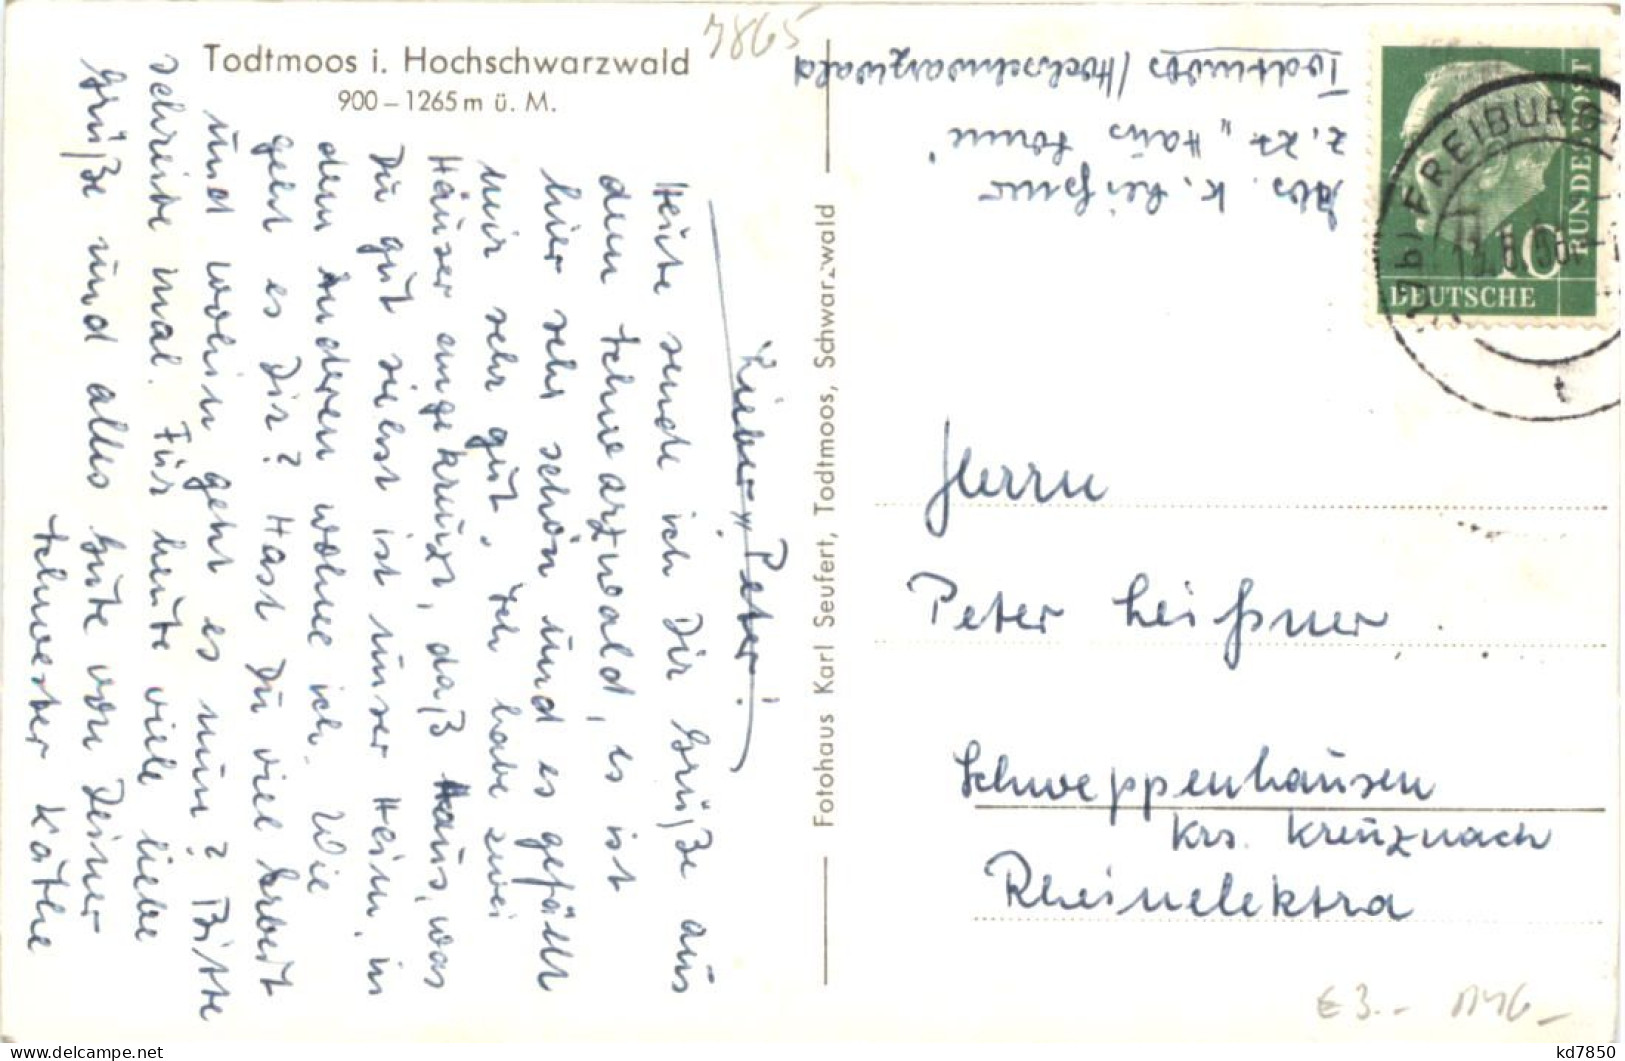 7865
Todtmoos i. Hochschwarzwald
900 – 1265 m ü. M.
Lieber Peter!
Heute sende ich Dir Grüße aus
dem Schwarzwald, es ist
hier sehr schön und es gefällt
mir sehr gut. Ich habe zwei
Häuser angekreuzt, das Haus, was
Du gut siehst ist unser Heim, in
dem Anderen wohne ich. Wie
geht es Dir? Hast Du viel Arbeit
und wohin geht es nun? Bitte
schreibe mal. Für heute viele liebe
Grüße und alles Gute von Deiner
Schwester Käthe
Fotohaus Karl Seufert, Todtmoos, Schwarzwald
Abs. K. Leißner
z. Zt. „Haus Sonne"
Todtmoos / Hochschwarzwald
FREIBURG
DEUTSCHE
BUNDESPOST
10
t
Herrn
Peter Leißner
Schweppenhausen
Krs. Kreuznach
Rheinelektra
€ 3.-
kd7850